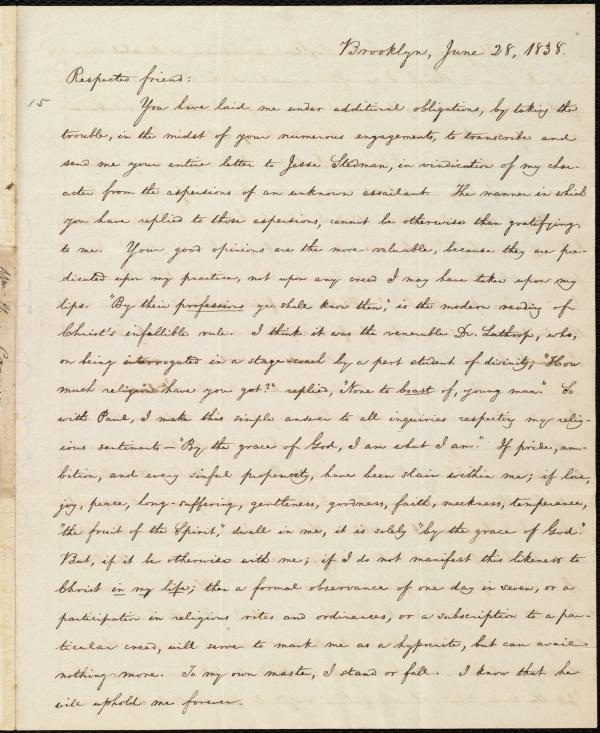 Brooklyn, June 28, 1838.
Respected friend:
15
You have laid me under additional obligations, by taking the
trouble, in the midst of your numerous engagements, to transcribe and
send me your entire letter to Jesse Stedman, in vindication of my char-
acter from the aspersions of an unknown assailant. The manner in which
you have replied to those aspersions, cannot be otherwise than gratifying
to me. Your good opinions are the more valuable, because they are pre-
dicated upon my practice, not upon any creed I may have taken upon my
lips. "By their professions ye shall know them," is the modern reading of
Christ's infallible rule. I think it was the venerable Dr. Lathrop, who,
on being interrogated in a stage-coach by a pert student of divinity, "How
much religion have you got?" replied, "None to boast of, young man." So
with Paul, I make this simple answer to all inquiries respecting my relig-
ious sentiments — "By the grace of God, I am what I am." If pride, am-
bition, and every sinful propensity, have been slain within me; if love,
joy, peace, long-suffering, gentleness, goodness, faith, meekness, temperance,
"the fruit of the Spirit," dwell in me, it is solely "by the grace of God."
But, if it be otherwise with me; if I do not manifest this likeness to
Christ in my life; then a formal observance of one day in seven, or a
participation in religious rites and ordinances, or a subscription to a par-
ticular creed, will serve to mark me as a hypocrite, but can avail
nothing more. To my own master, I stand or fall. I know that he
will uphold me forever.